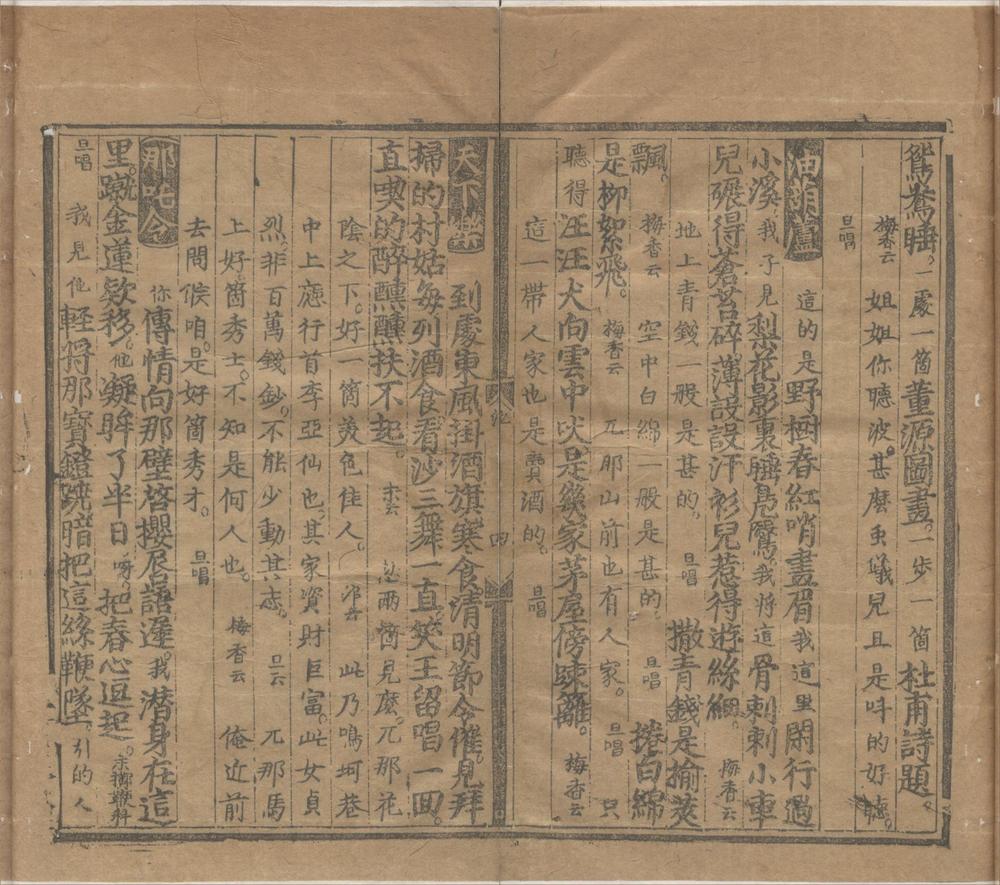 鴛鴦睡。一處一箇董源圖畫。一步一箇杜甫詩題
梅香云 姐姐你聽波。甚麽虫蟻兒且是呌的好聽。
旦唱
油葫蘆 這的是野樹春紅哨畫眉我這里閑行過
小溪。我子見梨花影裏睡鳧鷖。我將這骨剌剌小車
兒碾得蒼苔碎。薄設設汗衫兒惹得遊絲細。梅香云
地上青錢一般是甚的。旦唱 撒青錢是揄莢
飄。梅香云 空中白綿一般是甚的。旦唱 捲白綿
是柳絮飛。梅香云 兀那山前也有人家。旦唱 只
聽得汪汪犬向雲中吠。是幾家茅屋傍踈籬。梅香云
這一帶人家也是賣酒的。旦唱
天下樂 到處東風掛酒旗寒食清明節令催。見拜
掃的村姑每列酒食看沙三舞一直笑王留唱一囬。
直喫的醉醺醺扶不起。末云 這兩箇見麽。兀那花
陰之下。好一箇美色佳人。淨云 此乃鳴珂巷
中上廳行首李亞仙也。其家資財巨富。此女貞
烈。非百萬錢鈔。不能少動其志。旦云 兀那馬
上好箇秀士。不知是何人也。梅香云 俺近前
去問候咱。是好箇秀才。旦唱
那吒令 你傳情向那壁啓櫻唇語遲。我潜身在這
里。蹴金蓮欵移。他凝眸了半日呀。把春心逗起。末擲鞭科
旦唱 我見他輕將那寶鐙蹺暗把這絲鞭墜。引的人
四